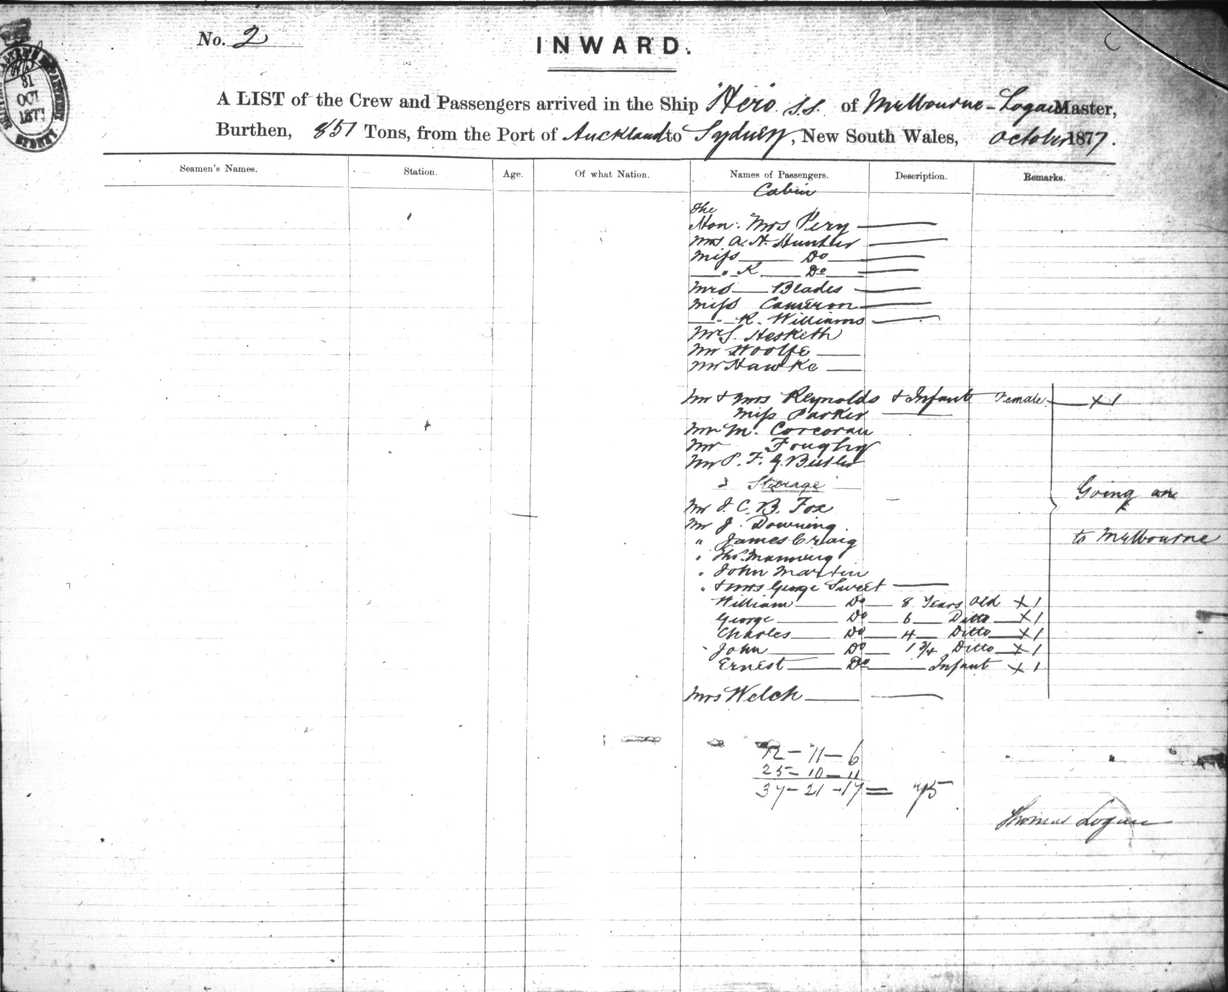 No. 2
INWARD.
31
OCT
1877
SYDNEY
A LIST of the Crew and Passengers arrived in the Ship "Hero" s.s. of Melbourne - Logan Master,
Burthen, 851 Tons, from the Port of Auckland to Sydney, New South Wales, October 1877.
Seamen's Names. Station. Age. Of what Nation. Names of Passengers. Description. Remarks.
Cabin
The
Hon. Mrs Pery
Mrs A. H. Hunter
Miss Do
" K Do
Mrs Blades
Miss Cameron
- K. Williams
Mrs Hesketh
Mr Woolfe
Mr Hawke
Mr & Mrs Reynolds & Infant Female X 1
Miss Parker
Mr M. Corcoran
Mr
Mr P. F. G. Butler
Steerage
Mr J. C. B. Fox
Mr J. Downing
" James Craig
" Thos. Manning
" John Martin
" & Mrs George Sweet
William Do 8 Years Old X 1
George Do 6 Ditto X 1
Charles Do 4 Ditto X 1
John Do 1 3/4 Ditto X 1
Ernest Do Infant X 1
Mrs Welch
Going on
to Melbourne
12 - 11 - 6
25 - 10 - 11
37 - 21 - 17 = 75
Thomas Logan